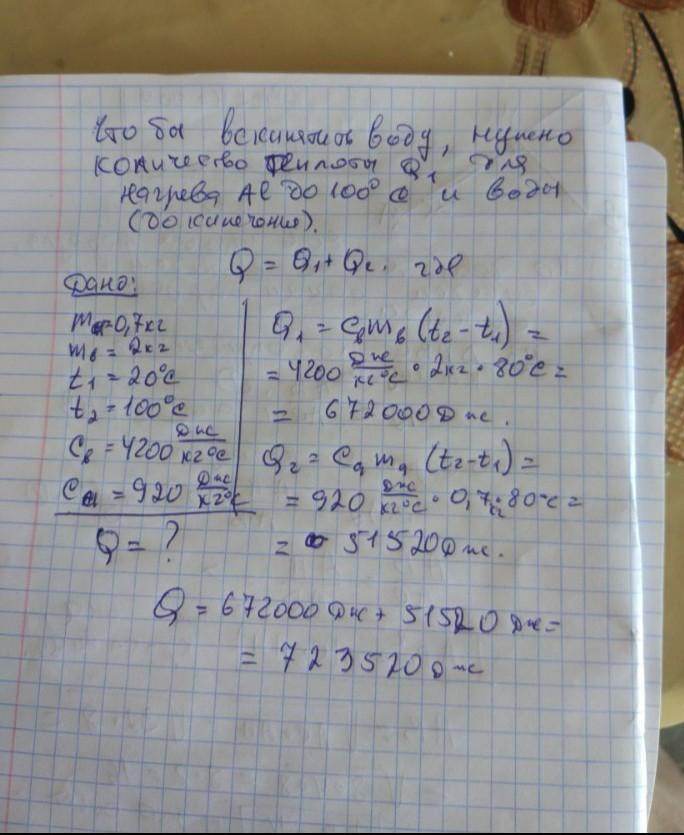 Что бы вскипятить воду, нужно
количество теплоты Q₁ для
нагрева Al до 100°C и воды
(до кипечения).
Q = Q₁ + Q₂. где
Дано:
mₐ=0,7кг
mв = 2кг
t₁ = 20°C
t₂ = 100°C
Cв = 4200 Дж/кг°C
Cₐ = 920 Дж/кг°C
Q = ?
Q₁ = Cвmв (t₂ - t₁) =
= 4200 Дж/кг°C · 2кг · 80°C =
= 672000 Дж.
Q₂ = Cₐ mₐ (t₂ - t₁) =
= 920 Дж/кг°C · 0,7кг · 80°C =
= 51520 Дж.
Q = 672000 Дж + 51520 Дж =
= 723520 Дж